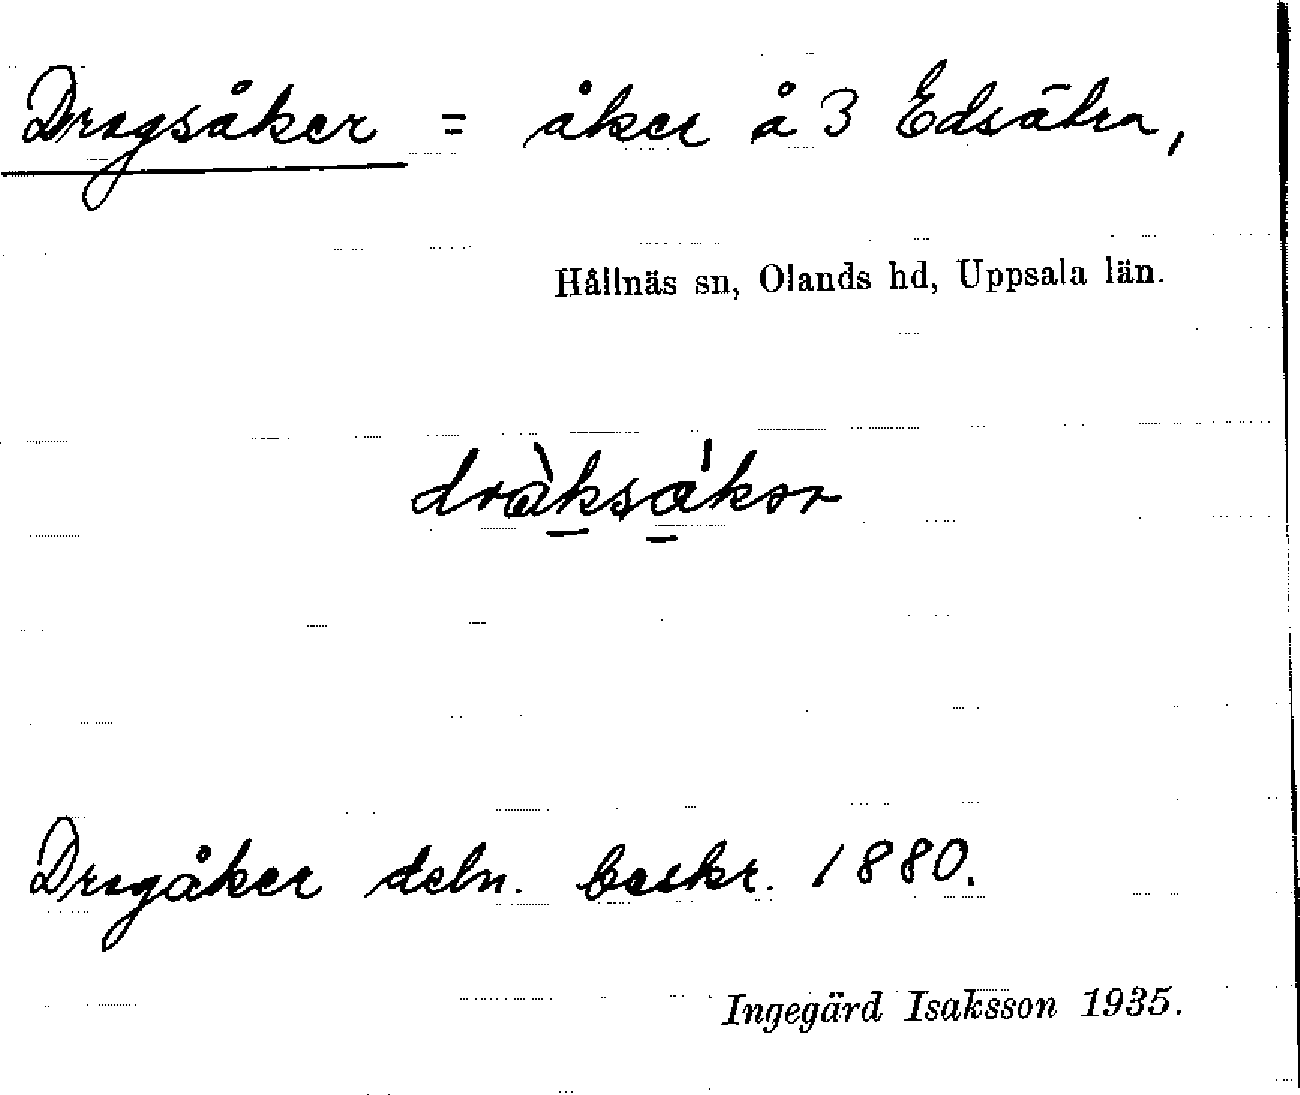 Dragsåker = åker å 3 Edsätra,
Hållnäs sn, Olands hd, Uppsala län.
dràksákər
Dragåker deln. beskr. 1880.
Ingegärd Isaksson 1935.